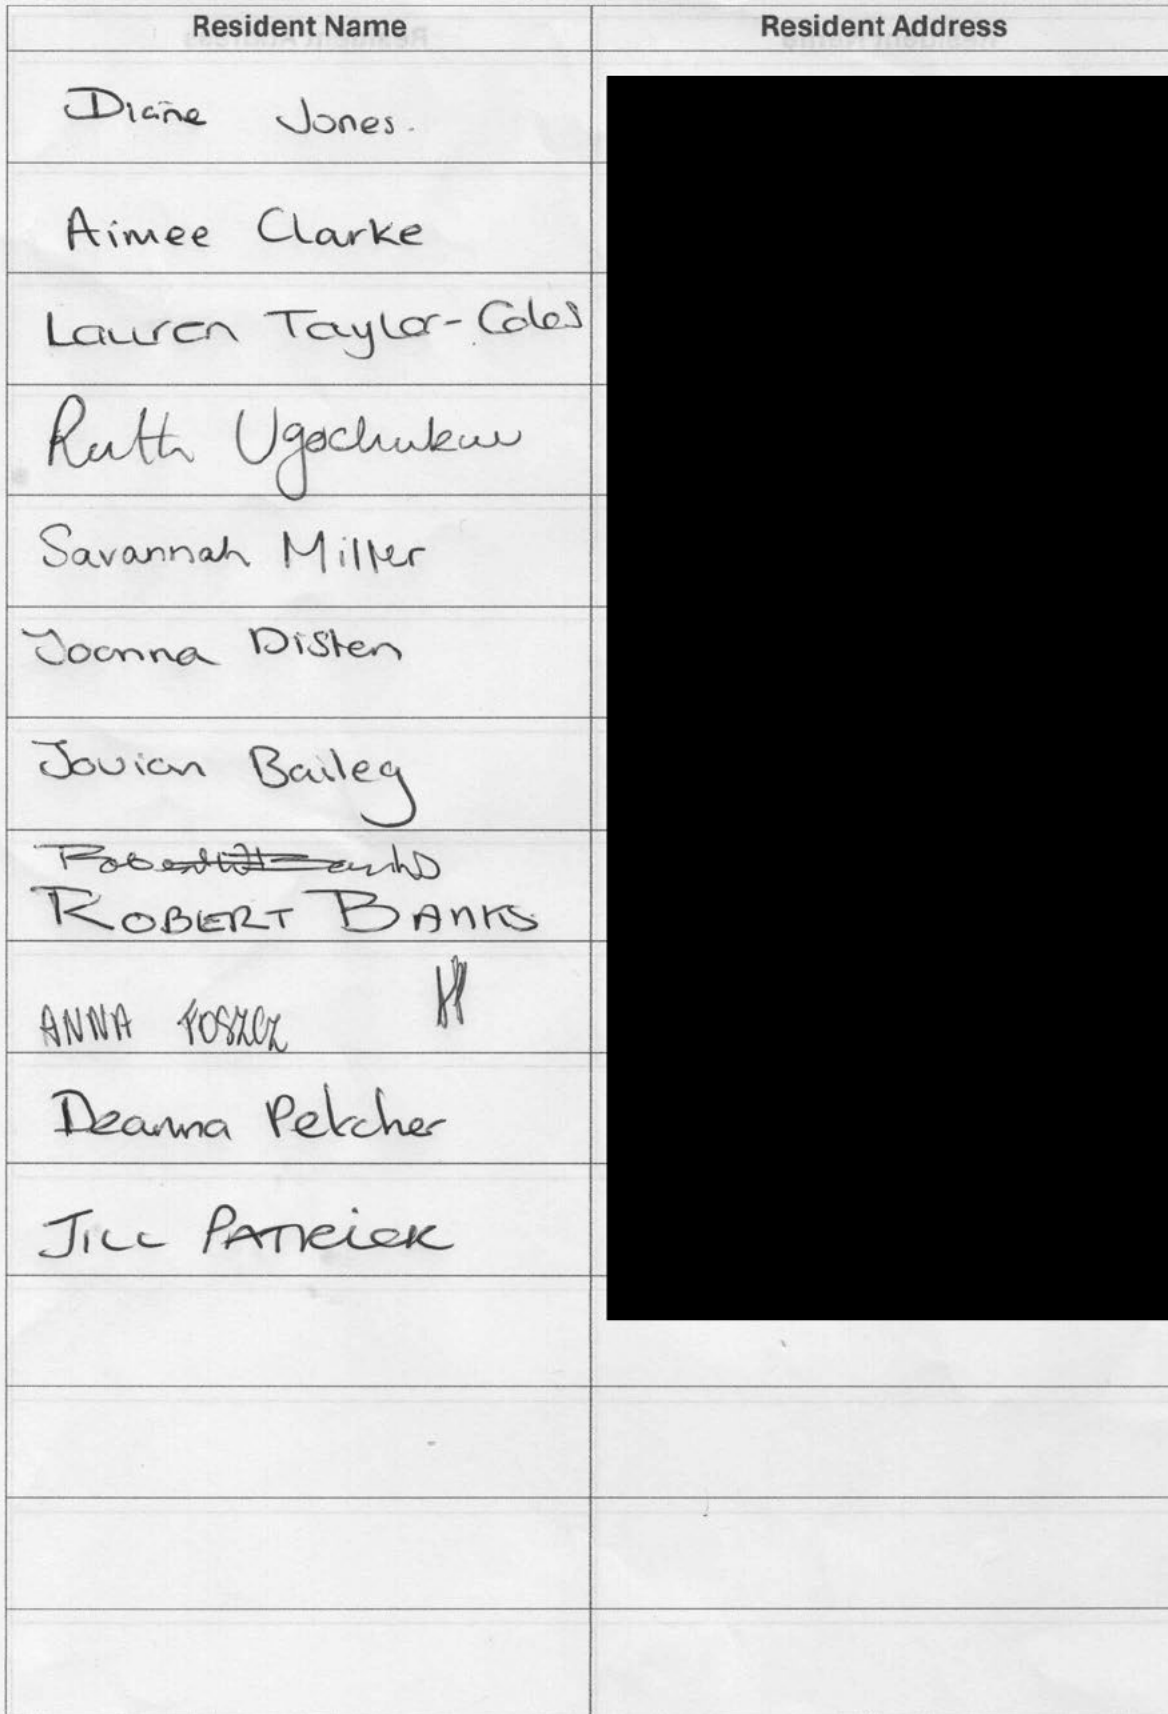 Resident Name Resident Address
Diane Jones.
Aimee Clarke
Lauren Taylor-Coles
Ruth Ugochukwu
Savannah Miller
Joanna Disten
Jovian Bailey
Robert Banks
ROBERT BANKS
ANNA
Deanna Petcher
JILL PATRICK